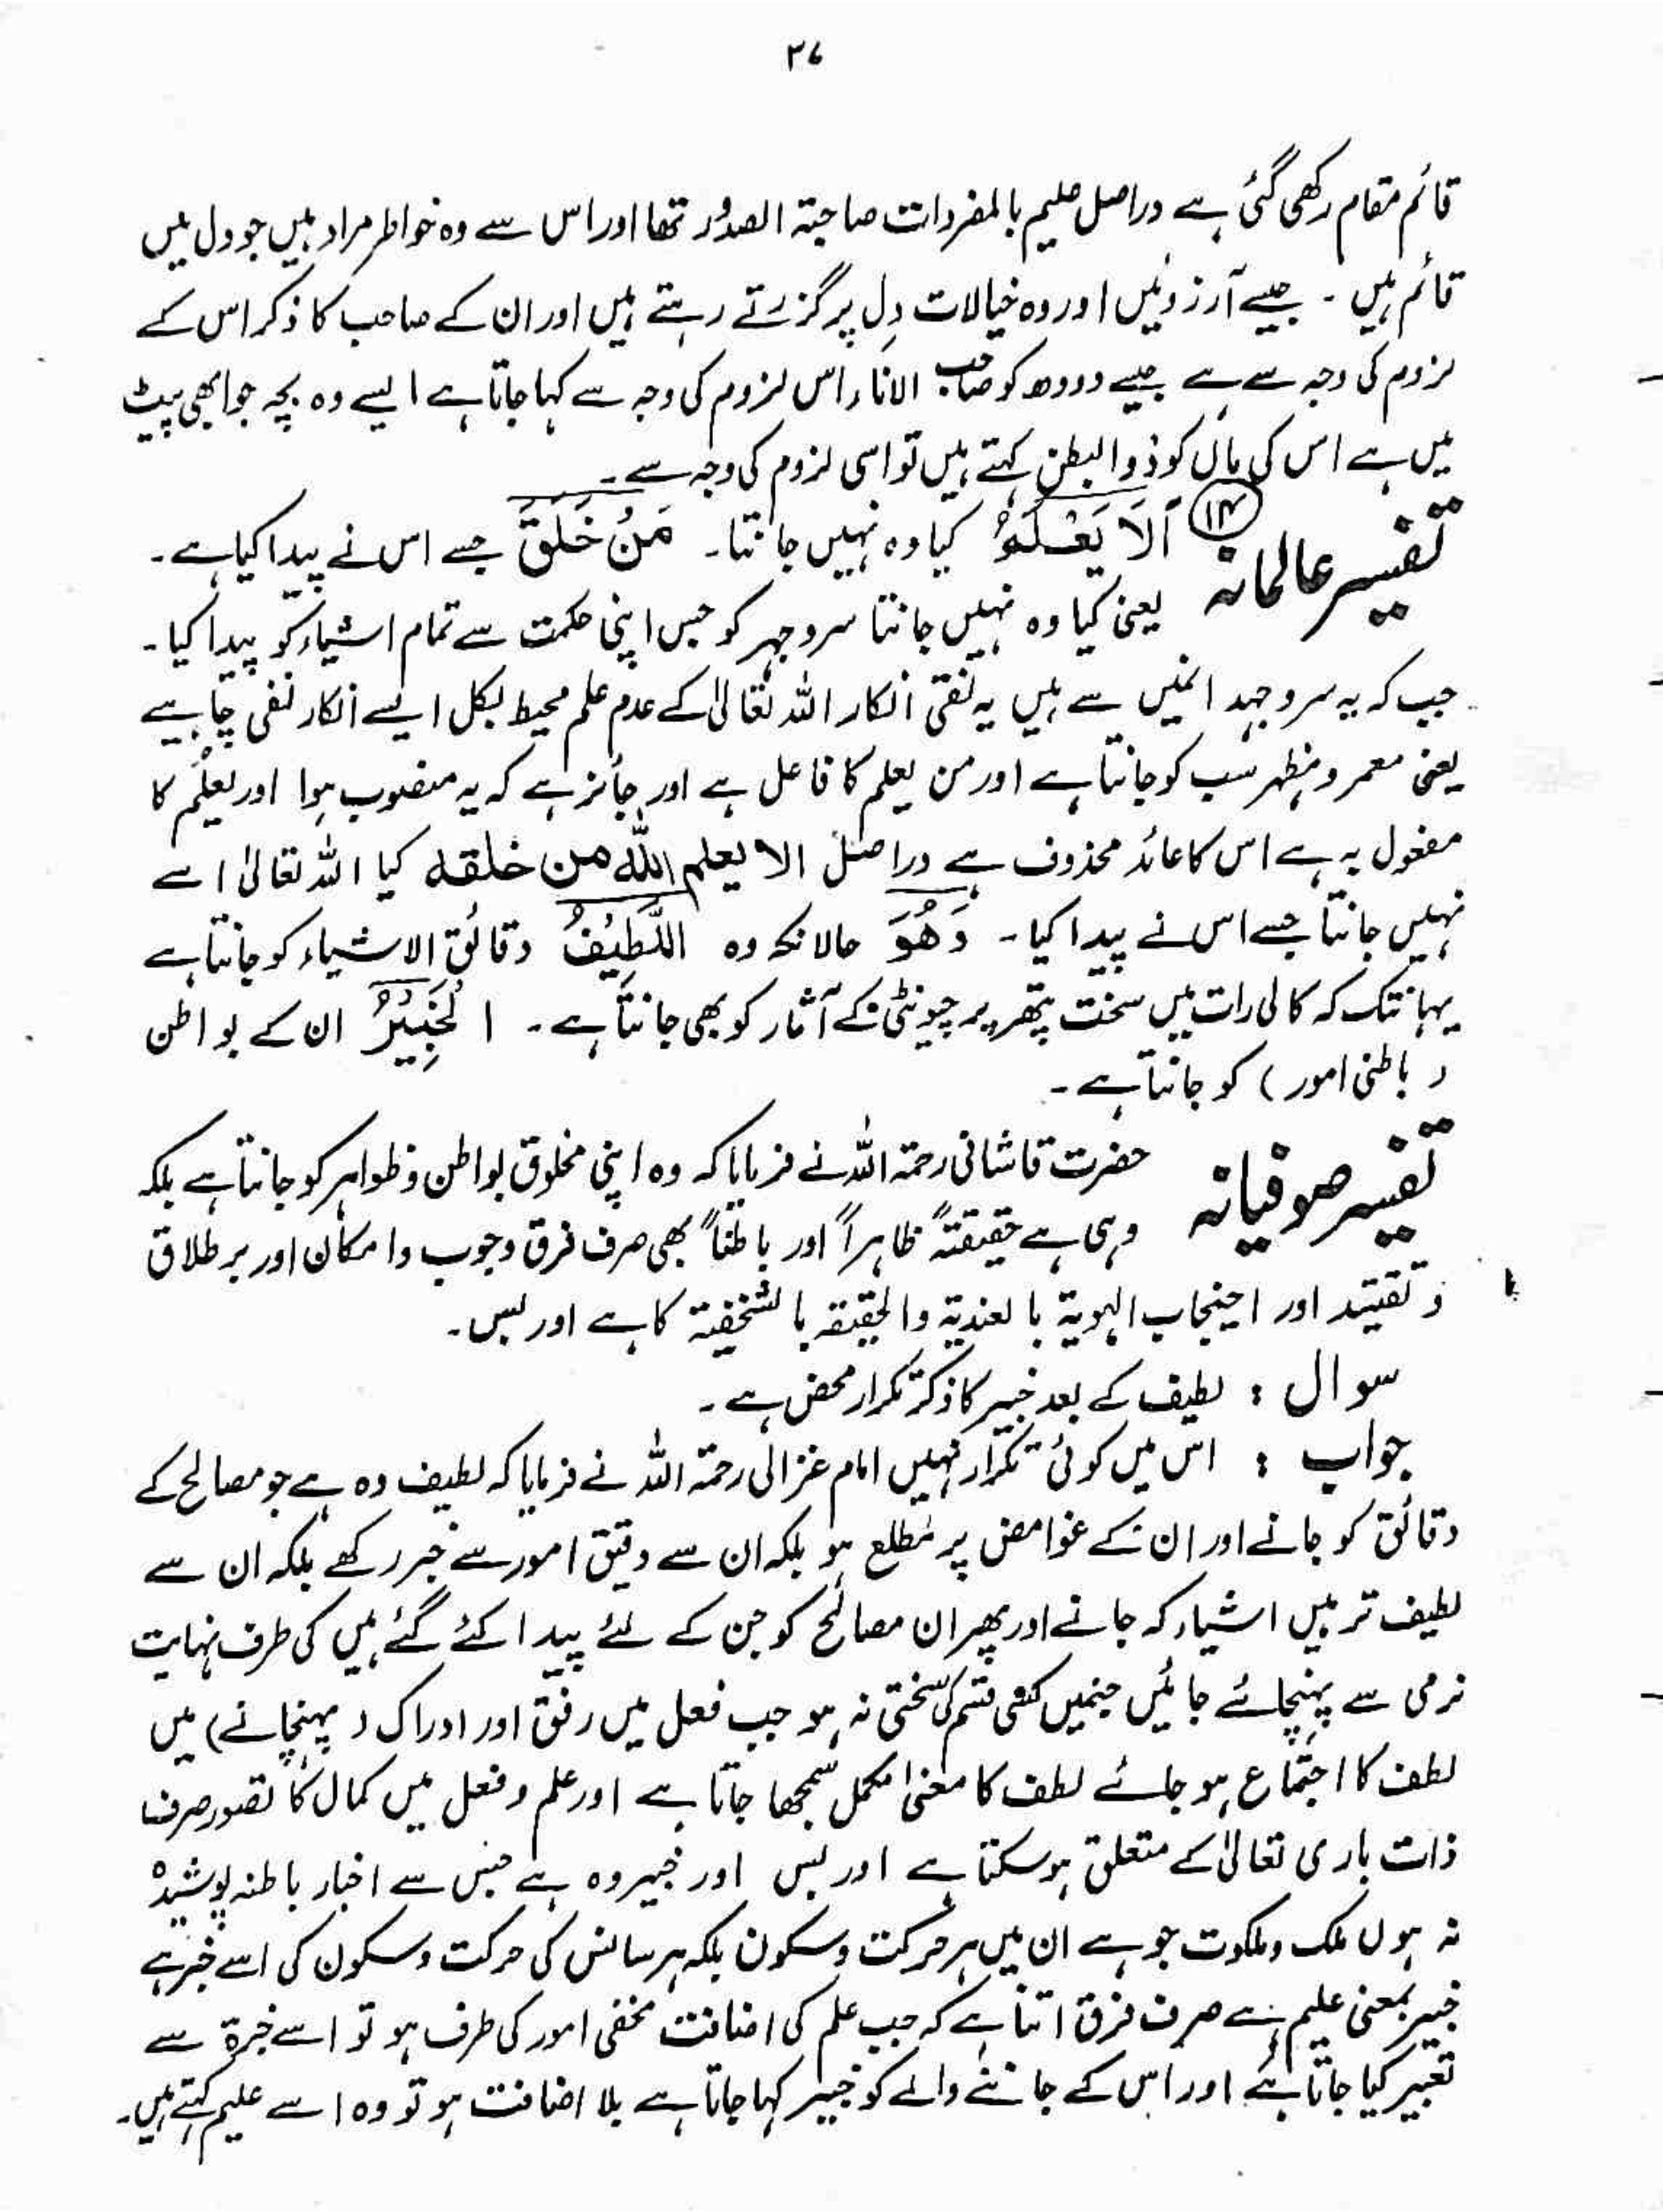 ۳۷
قائم مقام رکھی گئی ہے دراصل علیم بالمفردات صاحبۃ الصدُور تھا اور اس سے وہ خواطر مراد ہیں جو دل میں
قائم ہیں ۔ جیسے آرزوئیں اور وہ خیالات دِل پر گزرتے رہتے ہیں اور ان کے صاحب کا ذکر اس کے
لزوم کی وجہ سے ہے جیسے دودھ کو صاحب الاناء اس لزوم کی وجہ سے کہا جاتا ہے ایسے وہ بچہ جو ابھی پیٹ
میں ہے اس کی ماں کو ذوالبطن کہتے ہیں تو اسی لزوم کی وجہ سے ۔
تفسیر عالمانہ ⑭ اَلَا یَعْلَمُ کیا وہ نہیں جانتا ۔ مَنْ خَلَقَ جسے اس نے پیدا کیا ہے ۔
یعنی کیا وہ نہیں جانتا سر و جہر کو جس اپنی حکمت سے تمام اشیاء کو پیدا کیا ۔
جب کہ یہ سر و جہد انہیں سے ہیں یہ نفی انکار اللہ تعالیٰ کے عدم علم محیط بکل ایسے انکار نفی چاہیے
یعنی معمر و مظہر سب کو جانتا ہے اور من یعلم کا فاعل ہے اور جائز ہے کہ یہ منصوب ہوا اور یعلم کا
مفعول بہ ہے اس کا عائد محذوف ہے دراصل الا یعلم اللہ من خلقہ کیا اللہ تعالیٰ اسے
نہیں جانتا جسے اس نے پیدا کیا ۔ وَھُوَ حالانکہ وہ اللَّطِیْفُ دقائق الاشیاء کو جانتا ہے
یہانتک کہ کالی رات میں سخت پتھر پر چیونٹی کے آثار کو بھی جانتا ہے ۔ الْخَبِیْرُ ان کے بواطن
( باطنی امور ) کو جانتا ہے ۔
تفسیر صوفیانہ حضرت قاشانی رحمۃ اللہ نے فرمایا کہ وہ اپنی مخلوق بواطن و ظواہر کو جانتا ہے بلکہ
وہی ہے حقیقتہً ظاہراً اور باطناً بھی صرف فرق وجوب و امکان اور بر طلاق
و تقیید اور احتجاب الہویۃ بالعندیۃ والحقیقہ بالشخفیۃ کا ہے اور بس ۔
سوال : لطیف کے بعد خبیر کا ذکر تکرار محض ہے ۔
جواب : اس میں کوئی تکرار نہیں امام غزالی رحمۃ اللہ نے فرمایا کہ لطیف وہ ہے جو مصالح کے
دقائق کو جانے اور ان کے غوامض پر مطلع ہو بلکہ ان سے دقیق امور سے خبر رکھے بلکہ ان سے
لطیف تر ہیں اشیاء کہ جانے اور پھر ان مصالح کو جن کے لئے پیدا کئے گئے ہیں کی طرف نہایت
نرمی سے پہنچائے جائیں جنہیں کسی قسم کی سختی نہ ہو جب فعل میں رفق اور ادراک ( پہنچانے ) میں
لطف کا اجتماع ہو جائے لطف کا معنیٰ مکمل سمجھا جاتا ہے اور علم و فعل میں کمال کا تصور صرف
ذات باری تعالیٰ کے متعلق ہو سکتا ہے اور بس اور خبیر وہ ہے جس سے اخبار باطنہ پوشیدہ
نہ ہوں ملک و ملکوت جو ہے ان میں ہر حرکت و سکون بلکہ ہر سانس کی حرکت و سکون کی اسے خبر ہے
خبیر بمعنی علیم ہے صرف فرق اتنا ہے کہ جب علم کی اضافت مخفی امور کی طرف ہو تو اسے خبرۃ سے
تعبیر کیا جاتا ہے اور اس کے جاننے والے کو خبیر کہا جاتا ہے بلا اضافت ہو تو وہ اسے علیم کہتے ہیں ۔